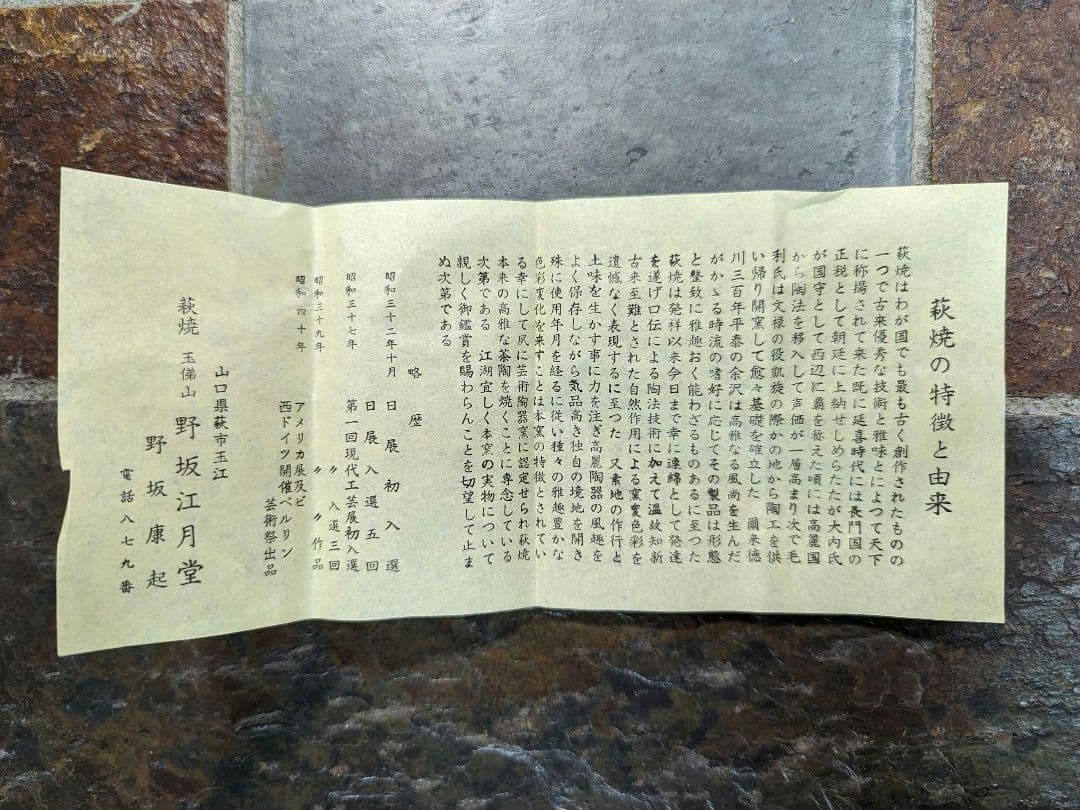 萩焼の特徴と由来
萩焼はわが国でも最も古く創作されたものの
一つで古来優秀な技術と雅味とによつて天下
に称揚されて来た既に延喜時代には長門国の
正税として朝廷に上納せしめらたたが大内氏
が国守として西辺に覇を称えた頃には高麗国
から陶法を移入して声価が一層高まり次で毛
利氏は文禄の役凱旋の際かの地から陶工を供
い帰り開窯して愈々基礎を確立した 爾来徳
川三百年平泰の余沢は高雅なる風尚を生んだ
がかゝる時流の嗜好に応じてその製品は形態
と整致に雅趣おく能わざるものあるに至つた
萩焼は発祥以来今日まで幸に連綿として発達
を遂げ口伝による陶法技術に加えて温故知新
古来至難とされた自然作用による窯変色彩を
遺憾なく表現するに至つた 又素地の作行と
土味を生かす事に力を注ぎ高麗陶器の風趣を
よく保存しながら気品高き独自の境地を開き
殊に使用年月を経るに従い種々の雅趣豊かな
色彩変化を来すことは本窯の特徴とされてい
る幸にして夙に芸術陶器窯に認定せられ萩焼
本来の高雅な茶陶を焼くことに専念している
次第である 江湖宜しく本窯の実物について
親しく御鑑賞を賜わらんことを切望して止ま
ぬ次第である
略歴
昭和三十二年十月 日展初入選
日展入選五回
昭和三十七年 第一回現代工芸展初入選
〃 〃 入選三回
昭和三十九年 〃 〃 作品
アメリカ展及ビ
昭和四十年 西ドイツ開催ベルリン
芸術祭出品
山口県萩市玉江
萩焼 玉悌山 野坂江月堂
野坂康起
電話八七九番